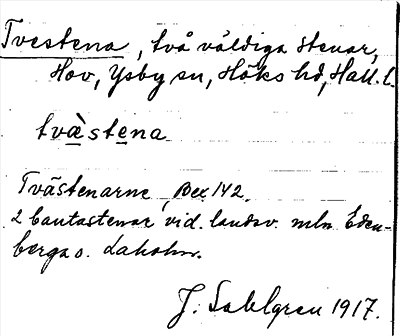 Tvestena, två väldiga stenar,
Hov, Ysby sn, Höks hd, Hall. l.
tvæ̀stena
Tvästenarne, Bex 142.
2 bautastenar vid. landsv. mln Eden-
berga o. Laholm.
J. Sahlgren 1917.